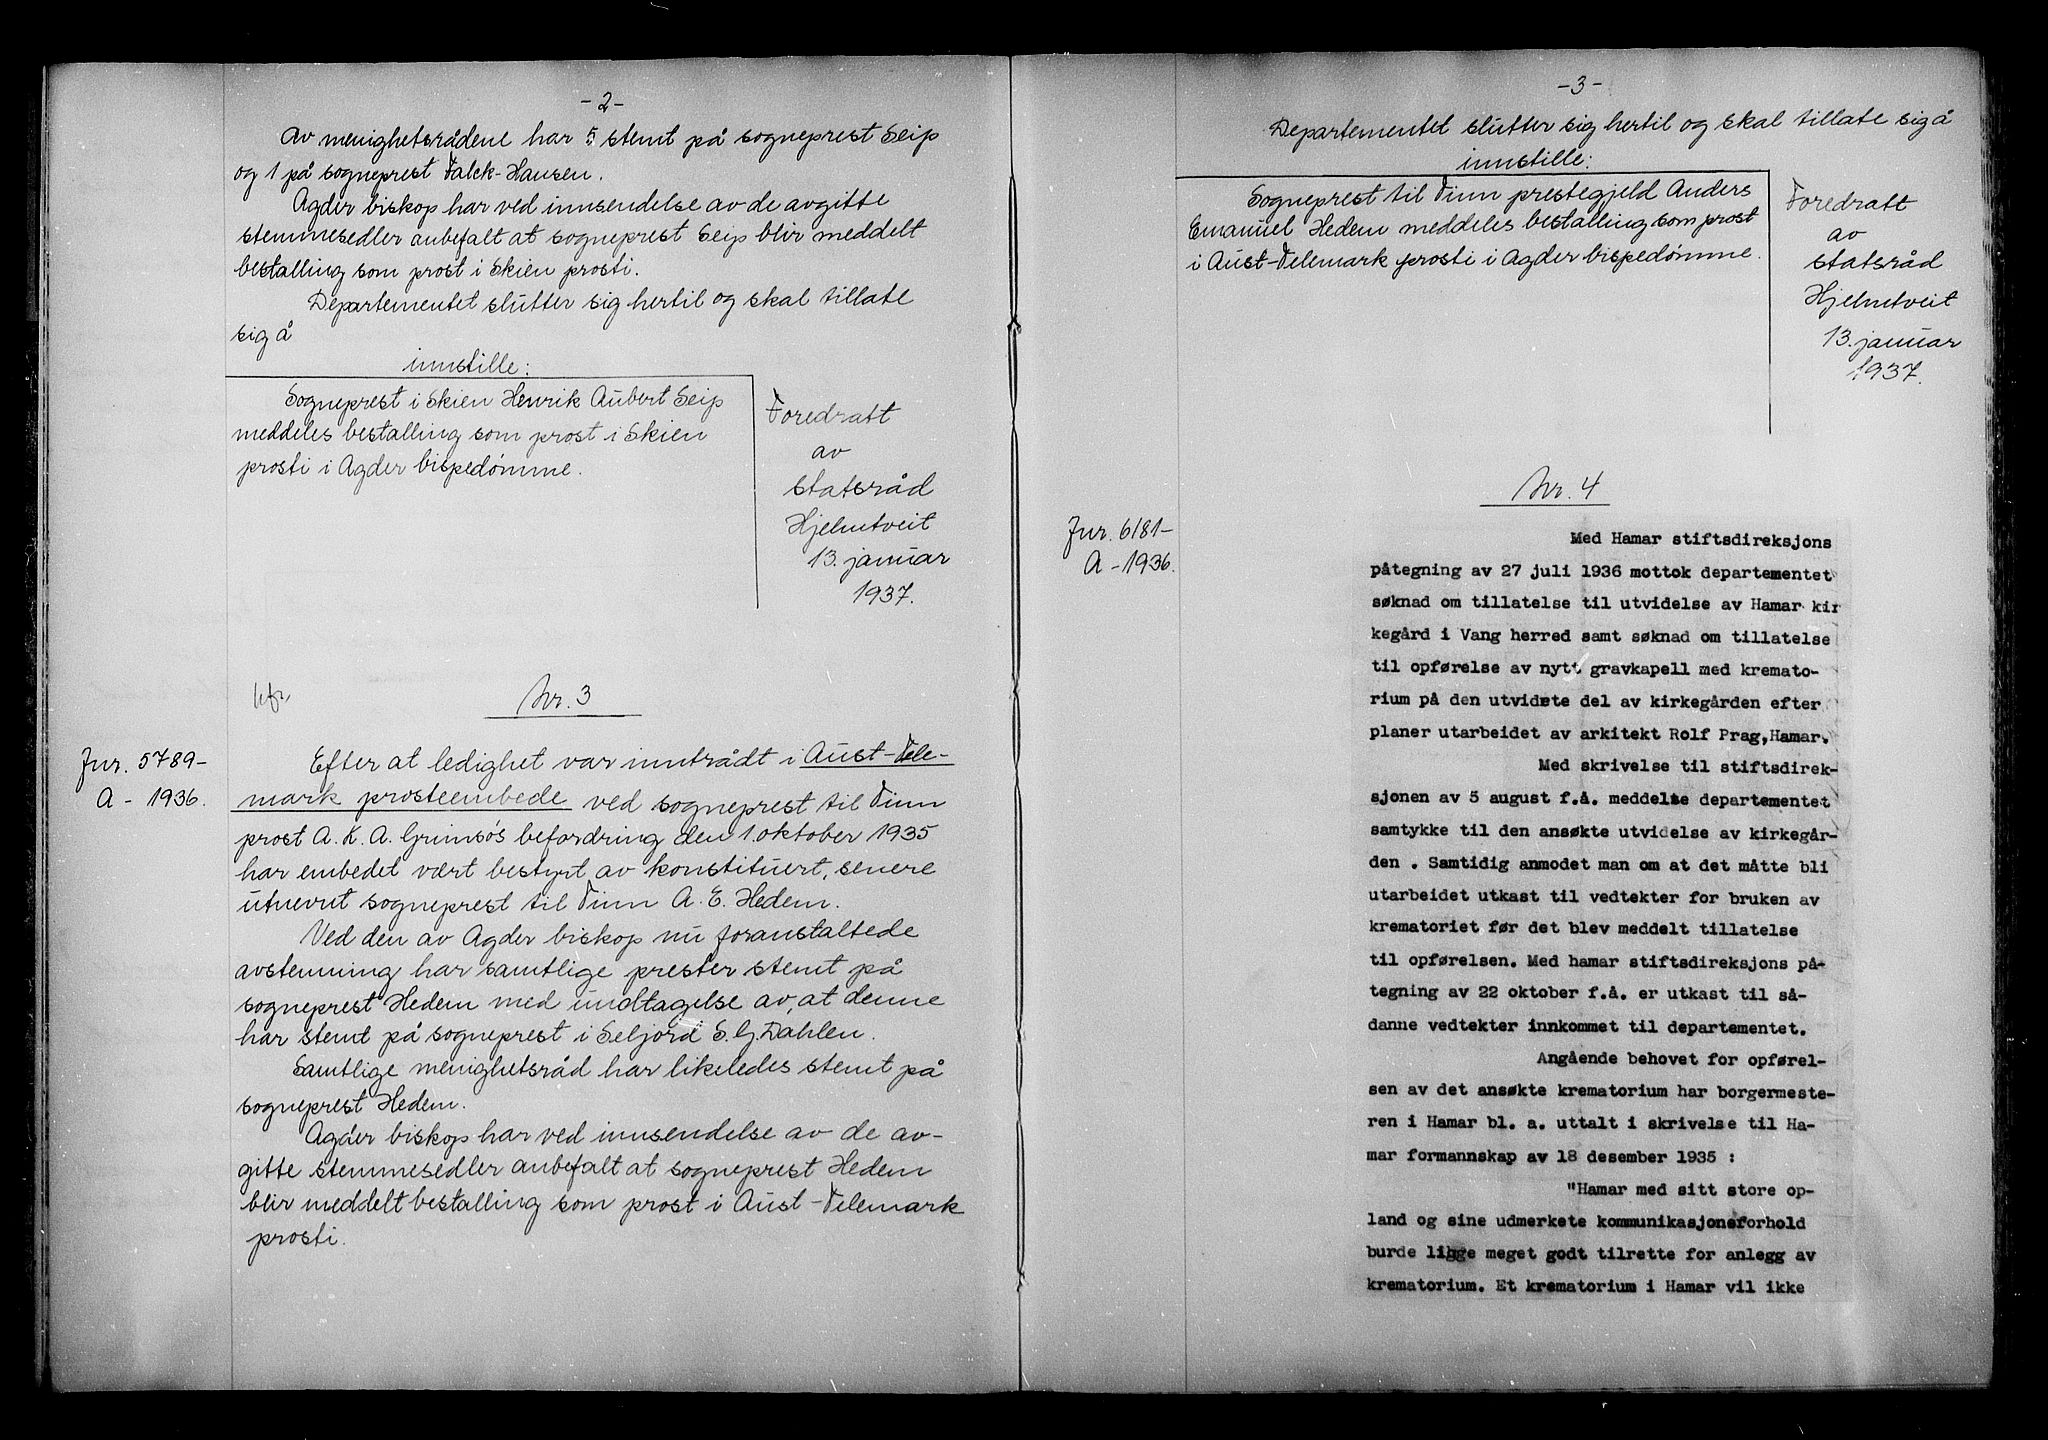 - 2 -
Av menighetsrådene har 5 stemt på sogneprest Seip
og 1 på sogneprest Falck-Hansen.
Agder biskop har ved innsendelse av de avgitte
stemmesedler anbefalt at sogneprest Seip blir meddelt
bestalling som prost i Skien prosti.
Departementet slutter sig hertil og skal tillate
sig å
innstille:
Sogneprest i Skien Henrik Aubert Seip
meddeles bestalling som prost i Skien
prosti i Agder bispedømme.
Foredratt
av
statsråd
Hjelmtveit
13. januar
1937.
Nr. 3
Jnr. 5789-
A - 1936.
Efter at ledighet var inntrådt i Aust-Tele-
mark prosteembede ved sogneprest til Tinn
prost A. K. A. Grimsøs befordring den 1. oktober 1935
har embedet vært bestyrt av konstituert, senere
utnevnt sogneprest til Tinn A. E. Hedem.
Ved den av Agder biskop nu foranstaltede
avstemning har samtlige prester stemt på
sogneprest Hedem med undtagelse av, at denne
har stemt på sogneprest i Seljord S. G. Dahlen.
Samtlige menighetsråd har likeledes stemt på
sogneprest Hedem.
Agder biskop har ved innsendelse av de av-
gitte stemmesedler anbefalt at sogneprest Hedem
blir meddelt bestalling som prost i Aust-Telemark
prosti.
- 3 -
Departementet slutter sig hertil og skal tillate sig å
innstille:
Sogneprest til Tinn prestegjeld Anders
Emanuel Hedem meddeles bestalling som prost
i Aust-Telemark prosti i Agder bispedømme.
Foredratt
av
statsråd
Hjelmtveit
13. januar
1937.
Nr. 4
Jnr. 6181-
A - 1936.
Med Hamar stiftsdireksjons
påtegning av 27 juli 1936 mottok departementet
søknad om tillatelse til utvidelse av Hamar kir
kegård i Vang herred samt søknad om tillatelse
til opførelse av nytt gravkapell med kremato-
rium på den utvidete del av kirkegården efter
planer utarbeidet av arkitekt Rolf Prag, Hamar.
Med skrivelse til stiftsdirek-
sjonen av 5 august f.å. meddelte departementet
samtykke til den ansøkte utvidelse av kirkegår-
den . Samtidig anmodet man om at det måtte bli
utarbeidet utkast til vedtekter for bruken av
krematoriet før det blev meddelt tillatelse
til opførelsen. Med hamar stiftsdireksjons på-
tegning av 22 oktober f.å. er utkast til så-
danne vedtekter innkommet til departementet.
Angående behovet for opførel-
sen av det ansøkte krematorium har borgermeste-
ren i Hamar bl. a. uttalt i skrivelse til Ha-
mar formannskap av 18 desember 1935 :
"Hamar med sitt store op-
land og sine udmerkete kommunikasjonsforhold
burde ligge meget godt tilrette for anlegg av
krematorium. Et krematorium i Hamar vil ikke